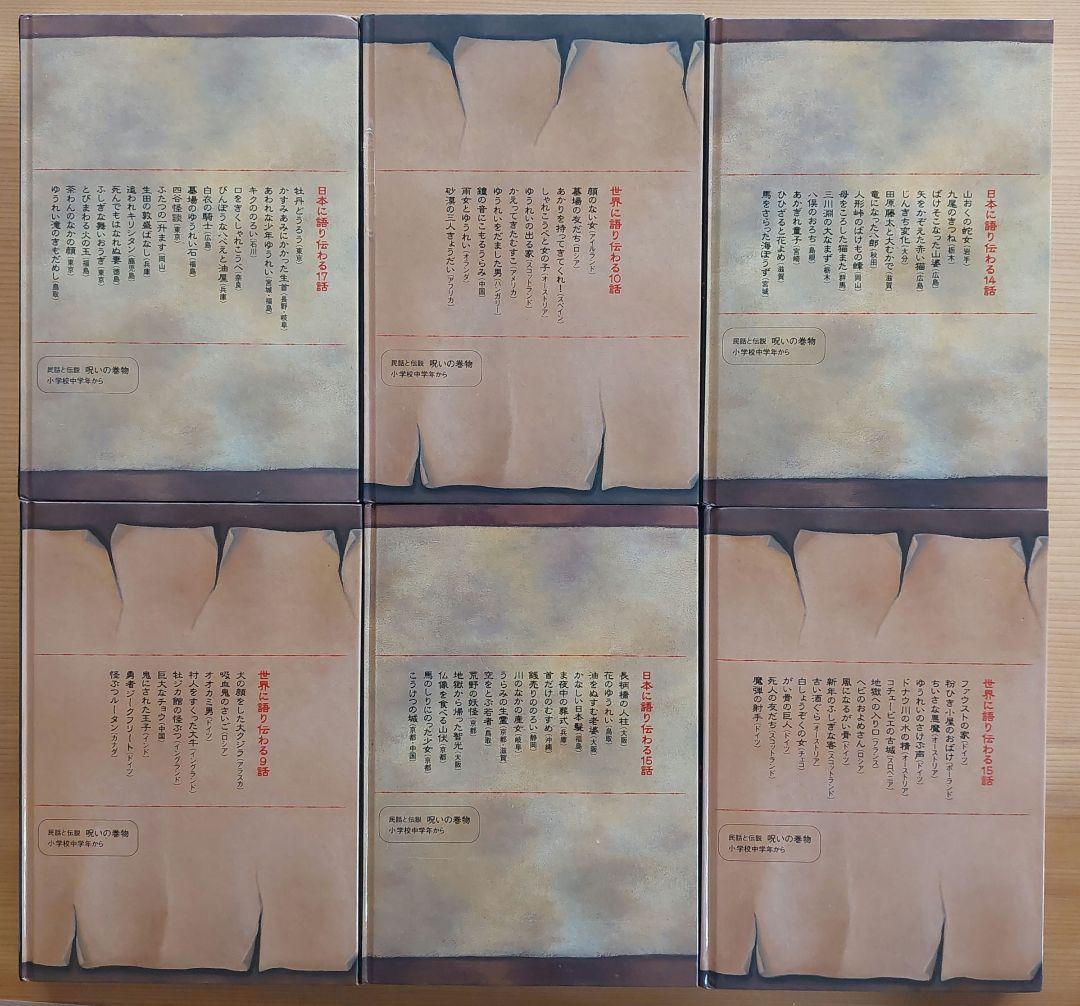 日本に語り伝わる17話
牡丹どうろう(東京)
かすみあみにかかった生首(長野・岐阜)
あわれな少年ゆうれい(宮城・福島)
キクののろい(石川)
口をきくしゃれこうべ(奈良)
びんぼうなべえと油屋(兵庫)
白衣の騎士(広島)
墓場のゆうれい石(福島)
四谷怪談(東京)
ふたつの一升ます(岡山)
生田の敦盛ばなし(兵庫)
追われキリシタン(鹿児島)
死んでもはなれぬ妻(徳島)
ふしぎな舞いおうぎ(東京)
とびまわる火の玉(福島)
茶わんのなかの顔(東京)
ゆうれい滝のきもだめし(鳥取)
民話と伝説 呪いの巻物
小学校中学年から
世界に語り伝わる10話
顔のない女(アイルランド)
墓場の友だち(ロシア)
あかりを持ってきてくれ!(スペイン)
しゃれこうべと女の子(オーストリア)
ゆうれいの出る家(スコットランド)
かえってきたむすこ(アメリカ)
ゆうれいをだました男(ハンガリー)
鐘の音にこもるうらみ(中国)
雨女とゆうれい(オランダ)
砂漠の三人きょうだい(アフリカ)
民話と伝説 呪いの巻物
小学校中学年から
日本に語り伝わる14話
山おくの蛇女(岩手)
九尾のきつね(栃木)
ばけそこなった山婆(広島)
矢をかぞえた赤い猫(広島)
じんぎち変化(大分)
田原藤太と大むかで(滋賀)
竜になった八郎(秋田)
人形峠のばけもの蜂(岡山)
母をころした猫また(群馬)
八俣のおろち(島根)
三川淵の大なまず(栃木)
あかぎれ童子(宮崎)
ひひざると花よめ(滋賀)
馬をさらった海ぼうず(宮城)
民話と伝説 呪いの巻物
小学校中学年から
世界に語り伝わる9話
犬の顔をした大クジラ(アラスカ)
吸血鬼のさいご(ロシア)
オオカミ男(ドイツ)
村人をすくった大牛(イングランド)
牡ジカ館の怪ぶつ(イングランド)
巨大なチョウ(中国)
鬼にされた王子(インド)
勇者ジークフリート(ドイツ)
怪ぶつルータン(カナダ)
民話と伝説 呪いの巻物
小学校中学年から
日本に語り伝わる15話
長柄橋の人柱(大阪)
花のゆうれい(鳥取)
油をぬすむ老婆(大阪)
かなしい日本髪(福島)
ま夜中の葬式(兵庫)
首だけのむすめ(沖縄)
銭売りののろい(静岡)
川のなかの鹿女(岐阜)
うらみの生霊(京都・滋賀)
空をとぶ若者(鳥取)
荒野の妖怪(京都)
地獄から帰った智光(大阪)
仏像を食べる山伏(京都)
馬のしりにのった少女(京都)
こうけつの城(京都・中国)
民話と伝説 呪いの巻物
小学校中学年から
世界に語り伝わる15話
ファウストの家(ドイツ)
粉ひき小屋のおばけ(ポーランド)
ちいさな悪魔(オーストリア)
ゆうれいのさけぶ声(ドイツ)
ドナウ川の水の精(オーストリア)
コチェービエの古城(スロベニア)
地獄への入り口(フランス)
ヘビのおよめさん(ロシア)
風になるがい骨(ドイツ)
新年のふしぎな客(スコットランド)
古い酒ぐら(オーストリア)
白しょうぞくの女(チェコ)
がい骨の巨人(ドイツ)
死人の友だち(スコットランド)
魔弾の射手(ドイツ)
民話と伝説 呪いの巻物
小学校中学年から